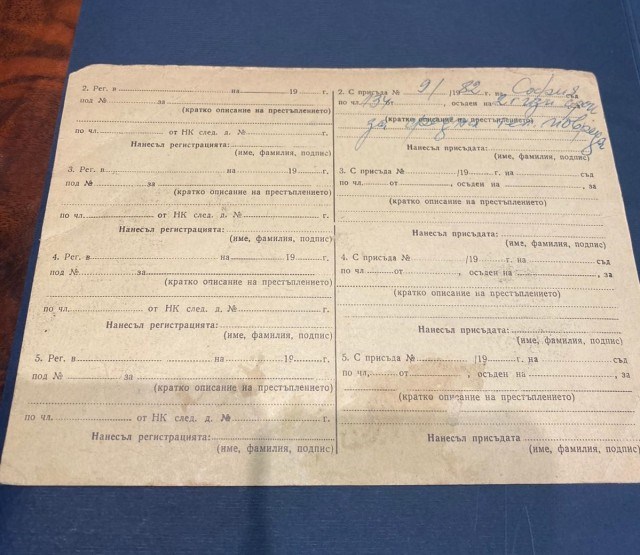 2. Рег. в на 19 г.
под № за
(кратко описание на престъплението)
по чл. от НК след. д. № г.
Нанесъл регистрацията:
(име, фамилия, подпис)
3. Рег. в на 19 г.
под № за
(кратко описание на престъплението)
по чл. от НК след. д. № г.
Нанесъл регистрацията:
(име, фамилия, подпис)
4. Рег. в на 19 г.
под № за
(кратко описание на престъплението)
по чл. от НК след. д. № г.
Нанесъл регистрацията:
(име, фамилия, подпис)
5. Рег. в на 19 г.
под № за
(кратко описание на престъплението)
по чл. от НК след. д. № г.
Нанесъл регистрацията:
(име, фамилия, подпис)
2. С присъда № 9/ /1982 г. на София съд
по чл. , осъден на
(кратко описание на престъплението)
за средна тел. повреда
Нанесъл присъдата:
(име, фамилия, подпис)
3. С присъда № /19 г. на съд
по чл. от , осъден на , за
(кратко описание на престъплението)
Нанесъл присъдата:
(име, фамилия, подпис)
4. С присъда № /19 г. на съд
по чл. от , осъден на , за
(кратко описание на престъплението)
Нанесъл присъдата:
(име, фамилия, подпис)
5. С присъда № /19 г. на съд
по чл, от , осъден на , за
(кратко описание на престъплението)
Нанесъл присъдата
(име, фамилия, подпис)